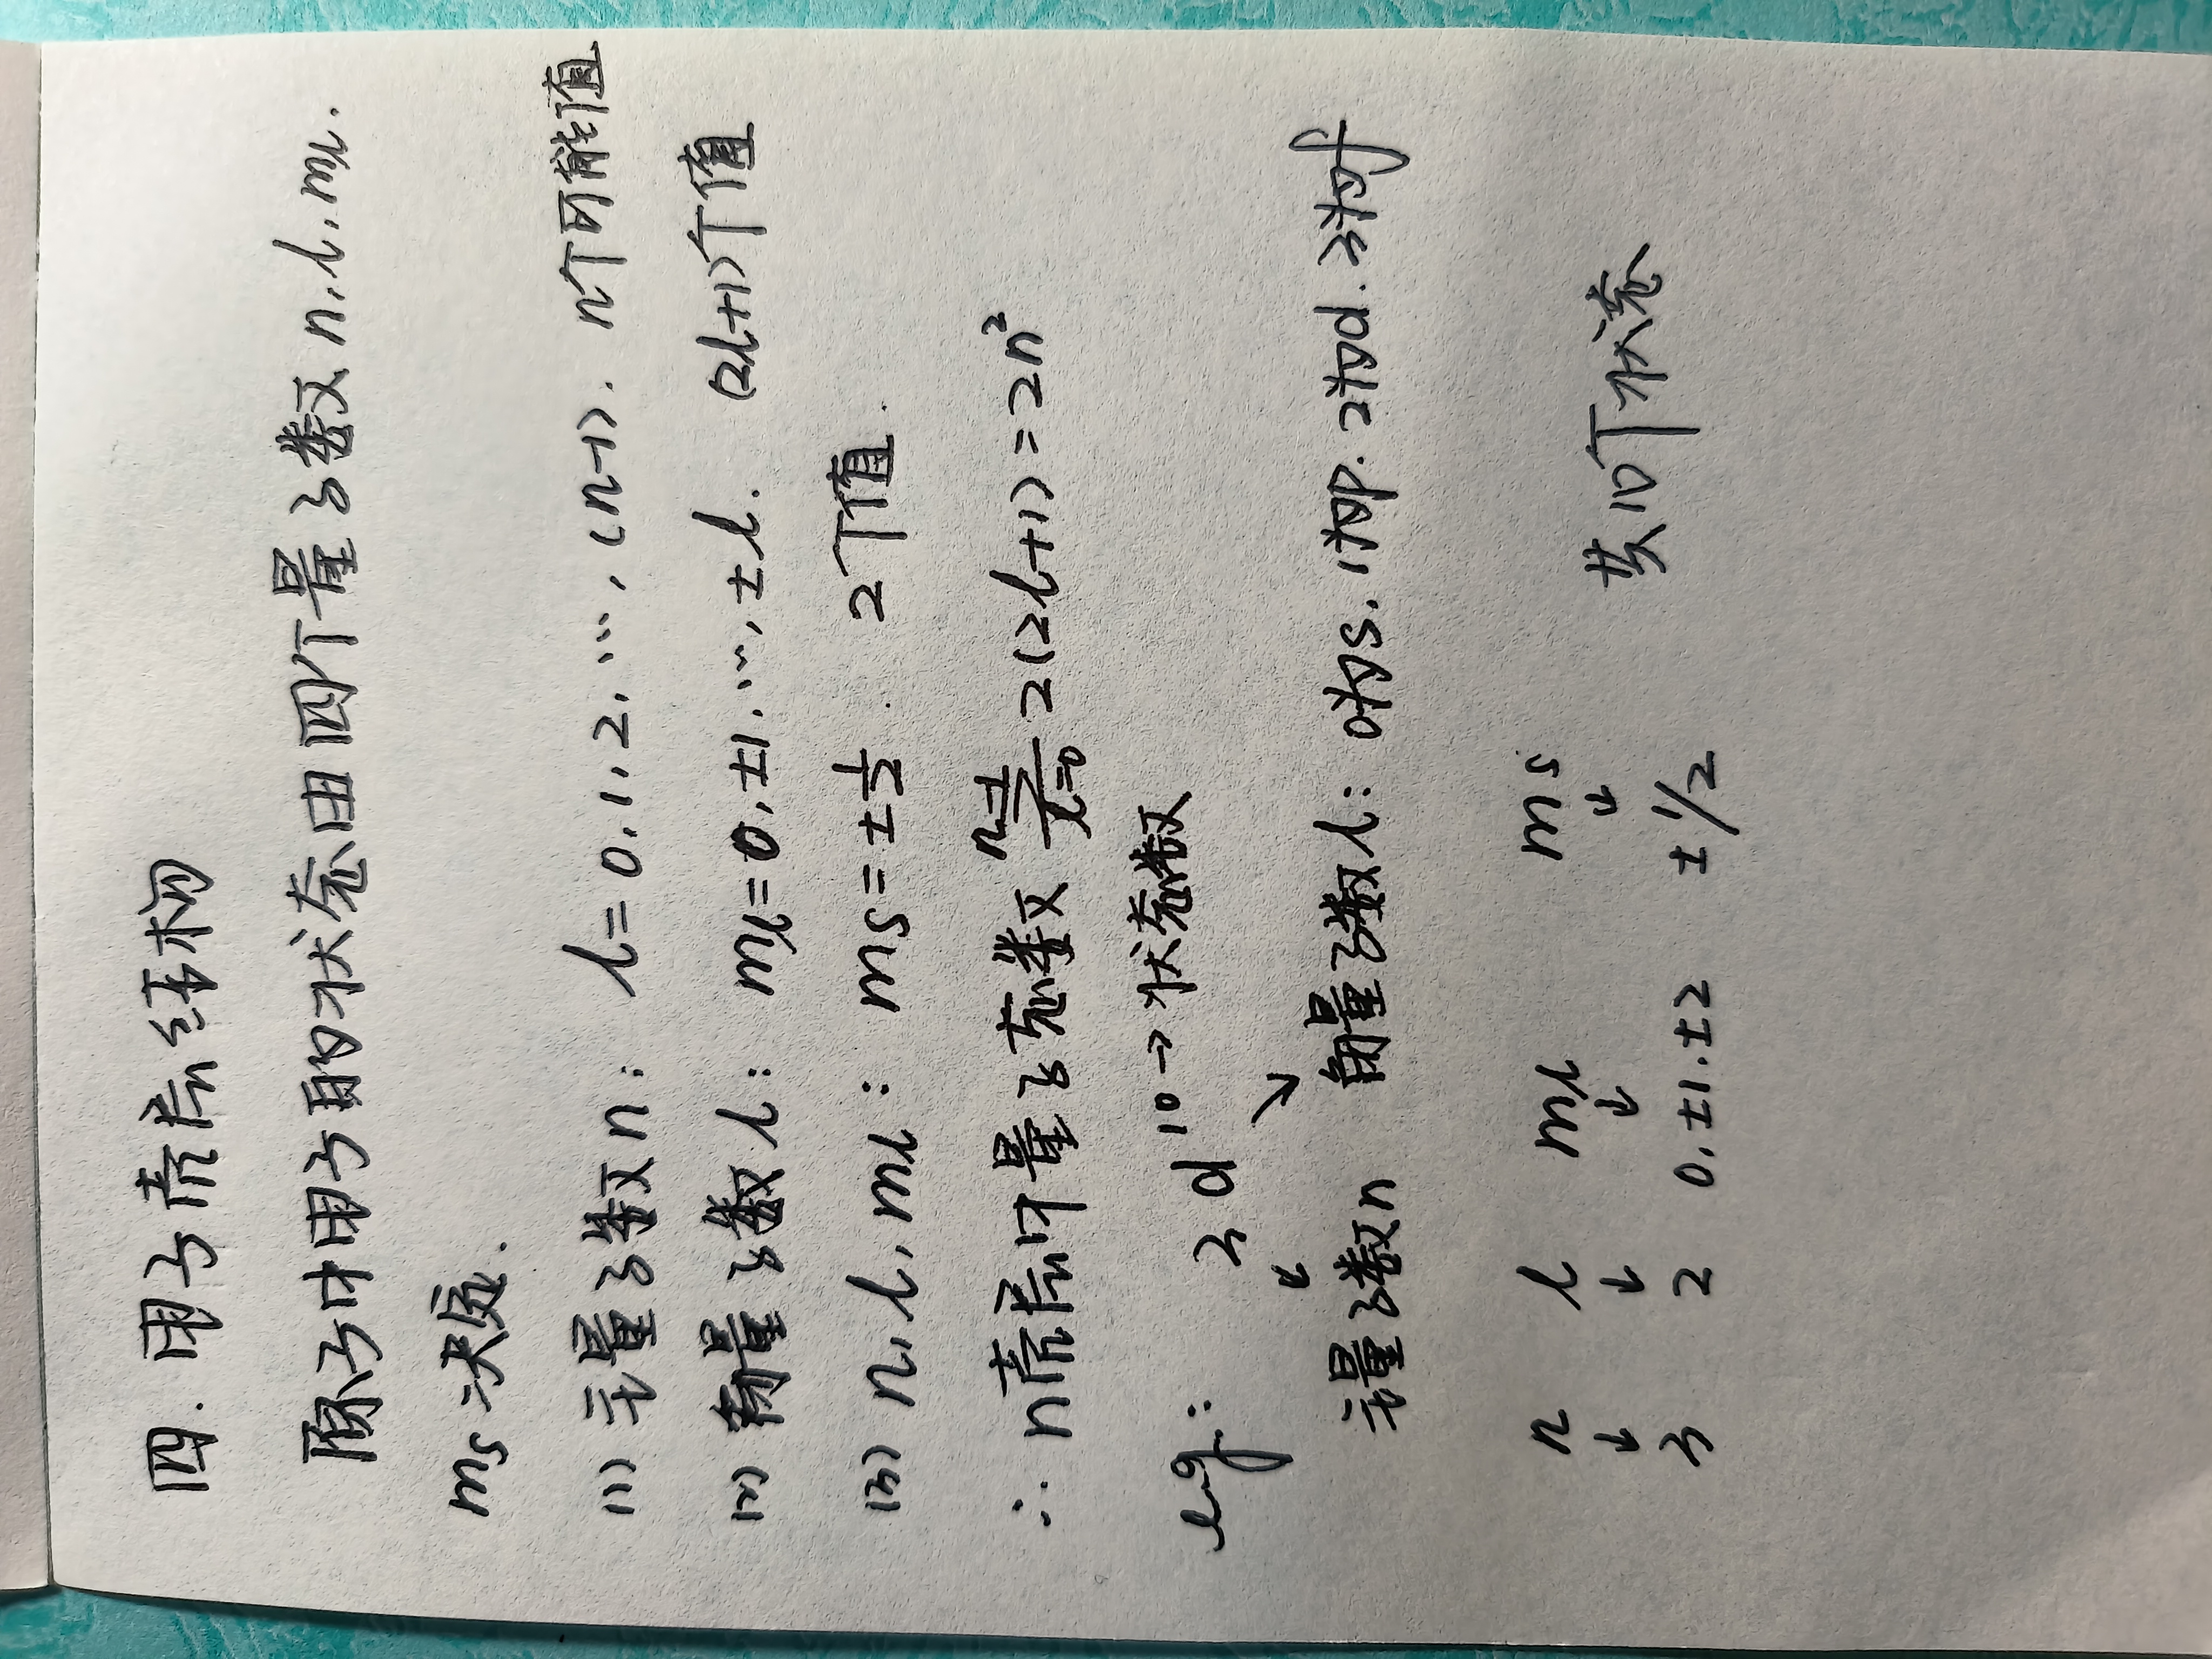 四. 电子壳层结构
原子中电子的状态由四个量子数 n, l, mₗ.
mₛ 决定.
(1) 主量子数 n: l = 0, 1, 2, …, (n-1). n个可能值
(2) 角量子数 l: mₗ = 0, ±1, …, ±l. (2l+1)个值
(3) n, l, mₗ: mₛ = ±1/2. 2个值.
∴ n壳层中量子态数 ∑_{l=0}^{n-1} 2(2l+1) = 2n²
e.g.: 3d¹⁰ → 状态数
↙ ↘
主量子数n 角量子数l: 0为s. 1为p. 2为d. 3为f
n l mₗ mₛ
↓ ↓ ↓ ↓ 共10个状态
3 2 0. ±1. ±2 ±1/2